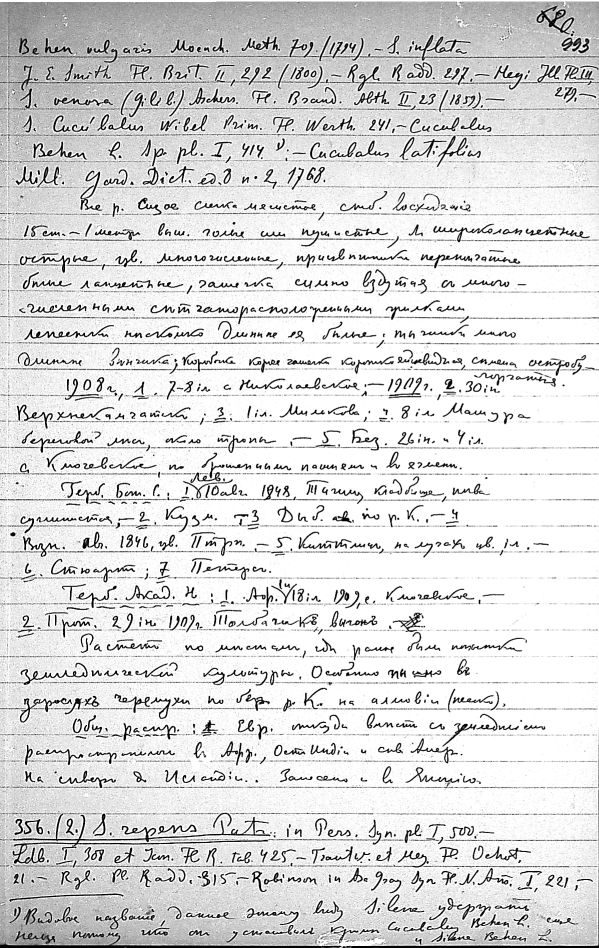 620.
993
Behen vulgaris Moench. Meth. 709. (1794). – S. inflata
J. E. Smith Fl. Brit. II, 292 (1800). – Rgl. Radd. 297. – Hegi Ill. Fl. III, 279. –
S. venosa (Gilib.) Aschers. Fl. Brand. Abth. II, 23 (1859). –
S. Cucubalus Wibel Prim. Fl. Werth. 241. – Cucubalus
Behen L. Sp. pl. I, 414 ¹⁾. – Cucubalus latifolius
Mill. Gard. Dict. ed. 8 n. 2, 1768.
Все р. Сизое слегка мясистое, стб. восходящие
15 cm. – 1 метра выш. голые или пушистые, л. широколанцетные
острые, цв. многочисленные, прицветники перепончатые
белые ланцетные, чашечка сильно вздутая с много-
численными сетчаторасположенными жилками,
лепестки несколько длиннее ея белые; тычинки много
длиннее венчика; коробочка короче чашечки коротко яйцевидная, семена остробу-
горчатыя.
1908 г., 1. 7–8 іл. с Николаевское, – 1909 г., 2. 30 ін
Верхнекамчатск; 3. 1 іл. Мильково; 4. 8 іл Машура
береговой лес, около тропы. – 5. Без. 26 ін. и 4 іл.
с Ключевское, по брошенным пашням и в ячмени.
Герб. Бот. С.: 1. Лев. 10 авг. 1908, Тигиль кладбище, почва
суглинистая, – 2. Кузм. – 3 Дыб. по р. К. – 4
Возн. ав. 1846, цв. Птрп. – 5. Киттлиц, на лугах цв. іл. –
6. Стюарт; 7 Петерс.
Герб. Акад. Н: 1. 18 іл 1909, с. Ключевское. –
2. Прот. 29 ін 1909. Толбачикъ, выгонъ.
Растет по местам, где ранее были попытки
земледельческой культуры. Особенно пышно в
зарослях черемухи по бер. р. К. на аллювіи (песок).
Общ. распр.: Евр. откуда вместе с земледеліем
распространилось в Афр., Ост Индіи и сев Амер.
на севере до Исландіи. Занесено и в
356. (2.) S. repens Patr. in Pers. Syn. pl. I, 500. –
Ldb. I, 308 et Icon. Fl. R. tab. 425. – Trautv. et Mey. Fl. Ochot.
21. – Rgl. Pl. Radd. 315. – Robinson in Asa Gray Syn. Fl. N. Am. I, 221, –
¹⁾ Видовое название, данное этому виду Silene удержать еще
нельзя потому что он установил кроме Cucubalus Behen L.
и Silene Behen L.